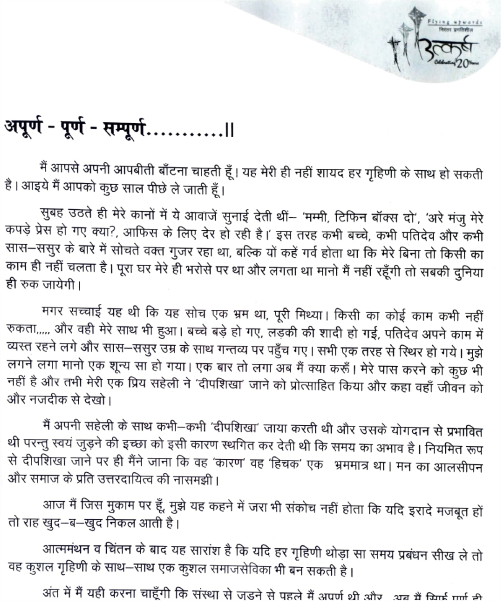 Flying upwards
निरंतर प्रगतिशील
उत्कर्ष
Celebrating 20 Years
अपूर्ण - पूर्ण - सम्पूर्ण...........॥
मैं आपसे अपनी आपबीती बाँटना चाहती हूँ। यह मेरी ही नहीं शायद हर गृहिणी के साथ हो सकती
है। आइये मैं आपको कुछ साल पीछे ले जाती हूँ।
सुबह उठते ही मेरे कानों में ये आवाजें सुनाई देती थीं– 'मम्मी, टिफिन बॉक्स दो', 'अरे मंजु मेरे
कपड़े प्रेस हो गए क्या?, आफिस के लिए देर हो रही है।' इस तरह कभी बच्चे, कभी पतिदेव और कभी
सास–ससुर के बारे में सोचते वक्त गुजर रहा था, बल्कि यों कहें गर्व होता था कि मेरे बिना तो किसी का
काम ही नहीं चलता है। पूरा घर मेरे ही भरोसे पर था और लगता था मानो मैं नहीं रहूँगी तो सबकी दुनिया
ही रुक जायेगी।
मगर सच्चाई यह थी कि यह सोच एक भ्रम था, पूरी मिथ्या। किसी का कोई काम कभी नहीं
रुकता,,,,, और वही मेरे साथ भी हुआ। बच्चे बड़े हो गए, लडकी की शादी हो गई, पतिदेव अपने काम में
व्यस्त रहने लगे और सास–ससुर उम्र के साथ गन्तव्य पर पहुँच गए। सभी एक तरह से स्थिर हो गये। मुझे
लगने लगा मानो एक शून्य सा हो गया। एक बार तो लगा अब मैं क्या करूँ। मेरे पास करने को कुछ भी
नहीं है और तभी मेरी एक प्रिय सहेली ने 'दीपशिखा' जाने को प्रोत्साहित किया और कहा वहाँ जीवन को
और नजदीक से देखो।
मैं अपनी सहेली के साथ कभी–कभी 'दीपशिखा' जाया करती थी और उसके योगदान से प्रभावित
थी परन्तु स्वयं जुड़ने की इच्छा को इसी कारण स्थगित कर देती थी कि समय का अभाव है। नियमित रूप
से दीपशिखा जाने पर ही मैंने जाना कि वह 'कारण' वह 'हिचक' एक भ्रममात्र था। मन का आलसीपन
और समाज के प्रति उत्तरदायित्व की नासमझी।
आज मैं जिस मुकाम पर हूँ, मुझे यह कहने में जरा भी संकोच नहीं होता कि यदि इरादे मजबूत हों
तो राह खुद–ब–खुद निकल आती है।
आत्ममंथन व चिंतन के बाद यह सारांश है कि यदि हर गृहिणी थोड़ा सा समय प्रबंधन सीख ले तो
वह कुशल गृहिणी के साथ–साथ एक कुशल समाजसेविका भी बन सकती है।
अंत में मैं यही करना चाहूँगी कि संस्था से जुड़ने से पहले मैं अपूर्ण थी और अब मैं सिर्फ पूर्ण ही